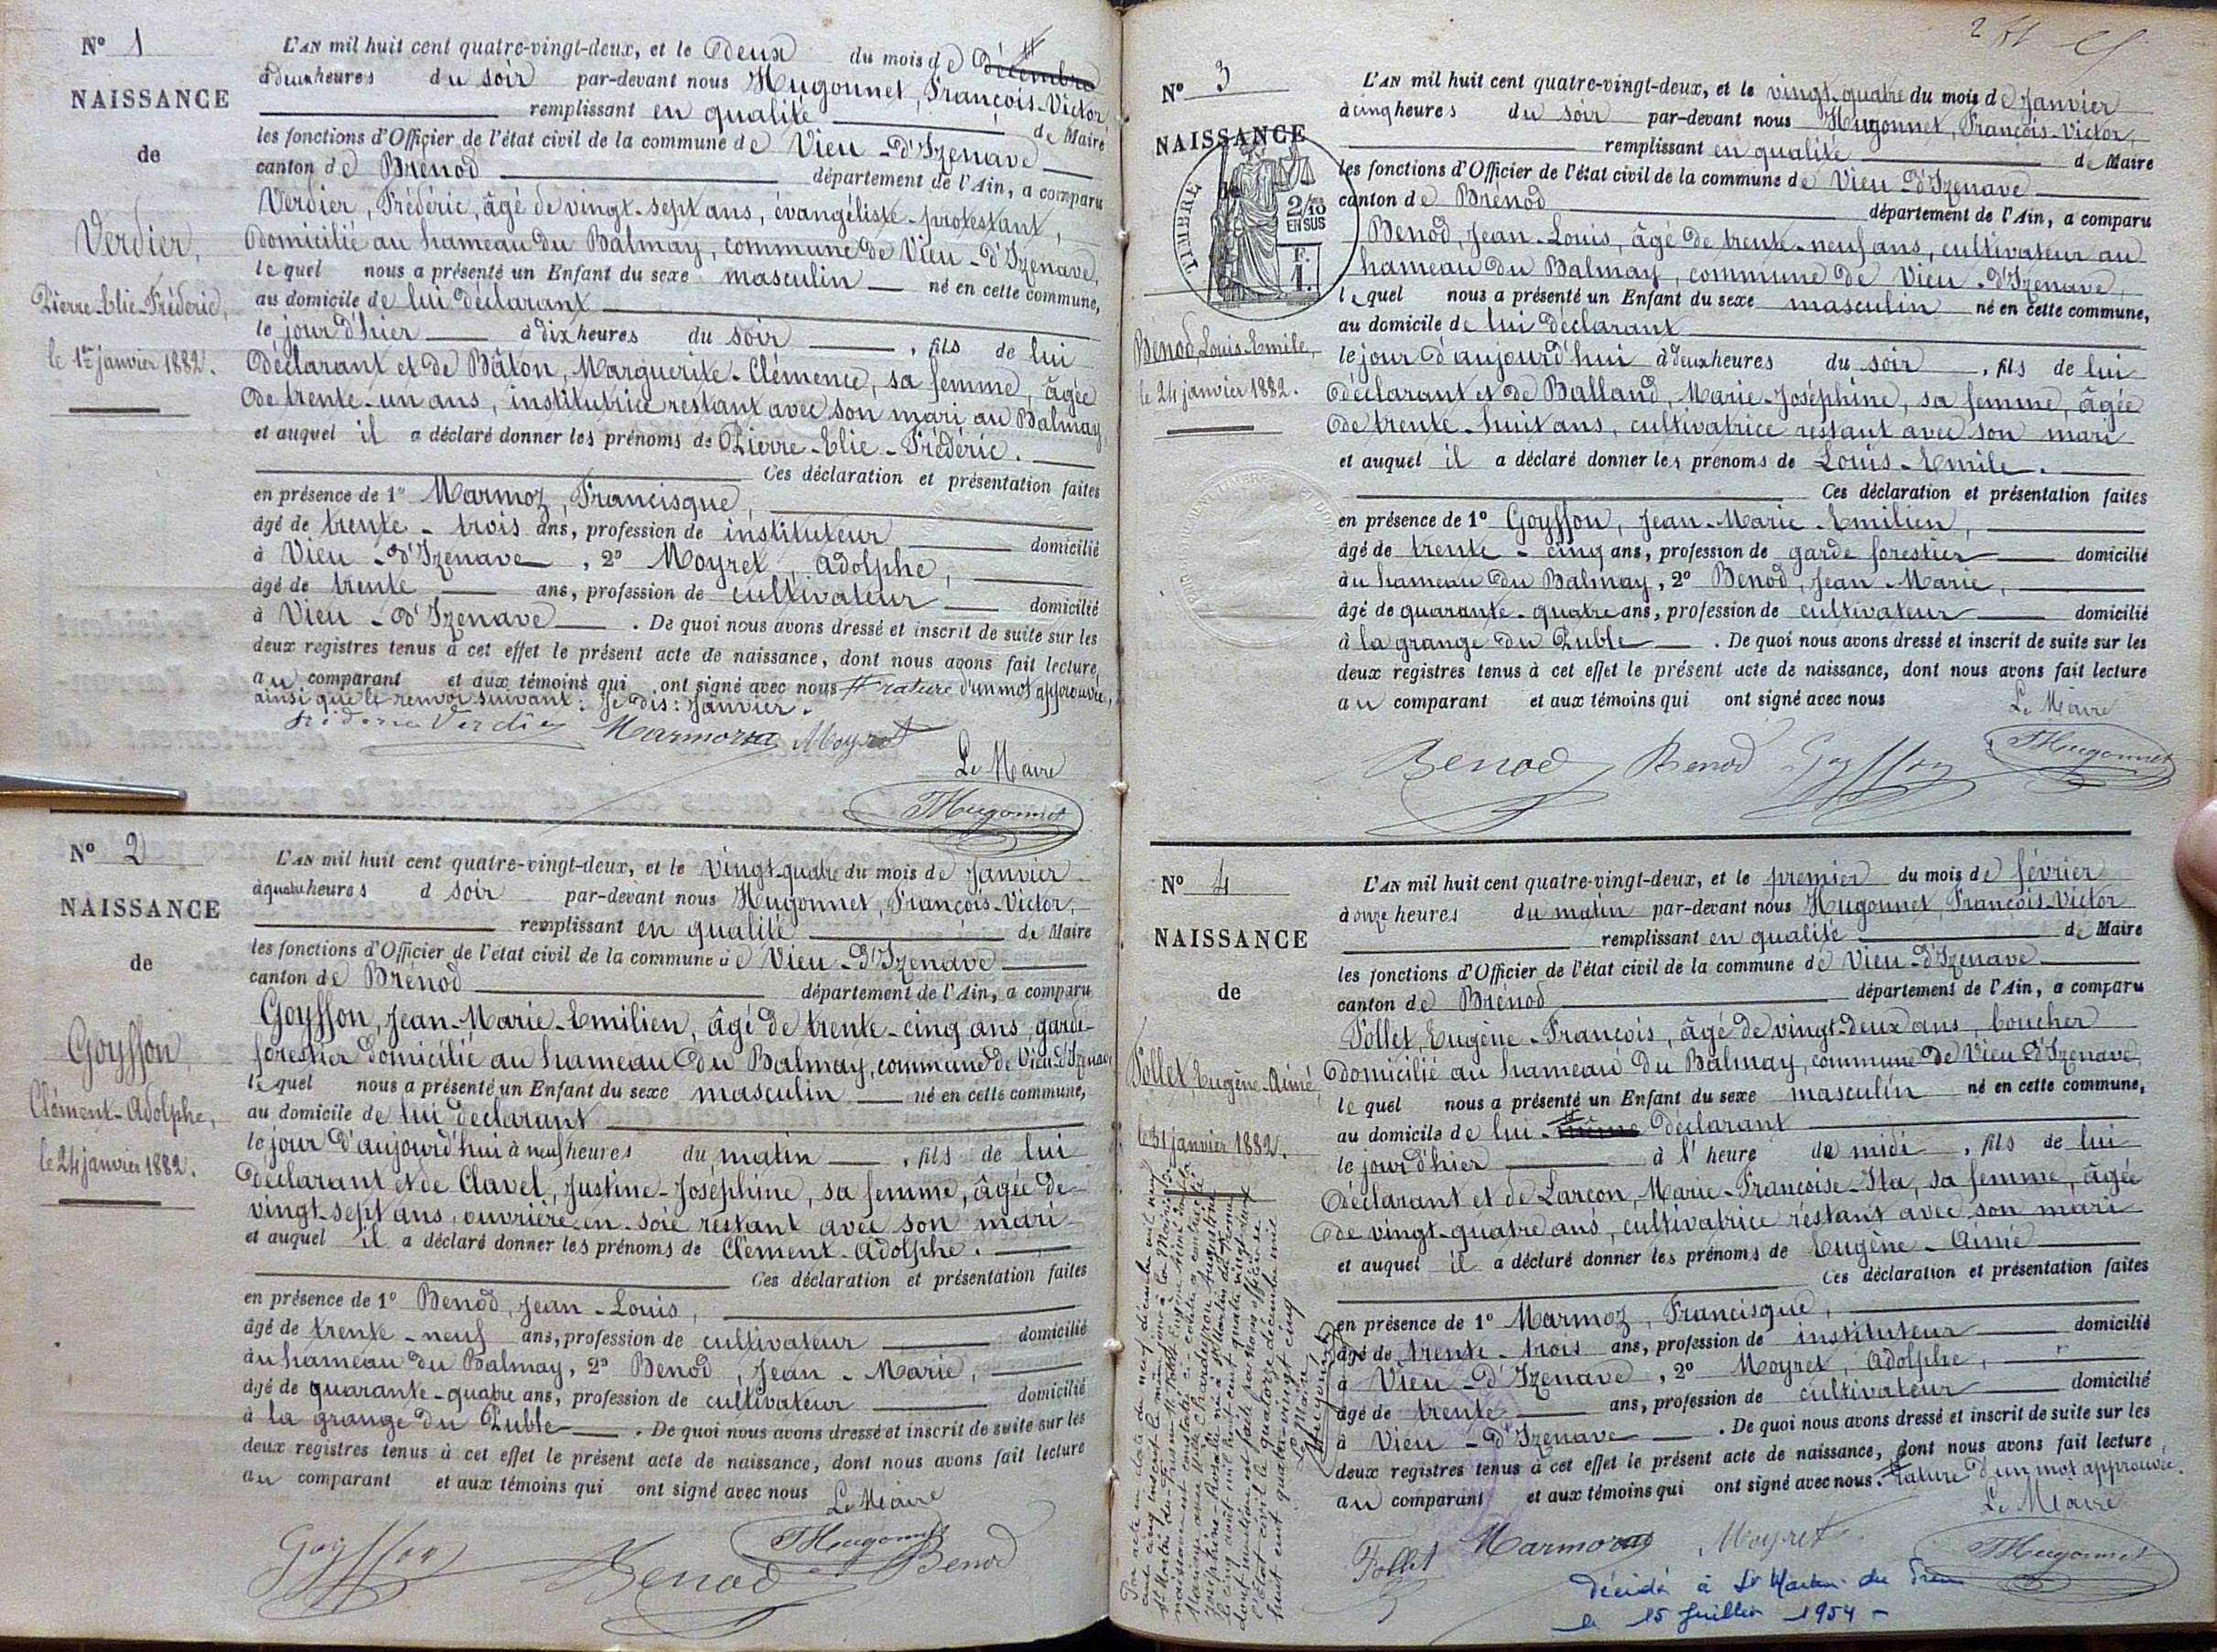 N° 1
NAISSANCE
de
Verdier,
Pierre-Elie-Fréderic,
le 1er janvier 1882.
L'AN mil huit cent quatre-vingt-deux, et le deux du mois de décembre #
à deux heures du soir par-devant nous Hugonnet, François-Victor
remplissant en qualité de Maire
les fonctions d'Officier de l'état civil de la commune de Vieu-d'Izenave
canton de Brénod département de l'Ain, a comparu
Verdier, Frédéric, âgé de vingt-sept ans, évangéliste-protestant,
domicilié au hameau du Balmay, commune de Vieu-d'Izenave,
lequel nous a présenté un Enfant du sexe masculin né en cette commune,
au domicile de lui déclarant
le jour d'hier à dix heures du soir, fils de lui
déclarant et de Bâton, Marguerite-Clémence, sa femme, âgée
de trente-un ans, institutrice restant avec son mari au Balmay
et auquel il a déclaré donner les prénoms de Pierre-Elie-Frédéric.
Ces déclaration et présentation faites
en présence de 1° Marmoz, Francisque,
âgé de trente-trois ans, profession de instituteur domicilié
à Vieu-d'Izenave, 2° Moyret, Adolphe,
âgé de trente ans, profession de cultivateur domicilié
à Vieu-d'Izenave. De quoi nous avons dressé et inscrit de suite sur les
deux registres tenus à cet effet le présent acte de naissance, dont nous avons fait lecture,
au comparant et aux témoins qui ont signé avec nous # rature d'un mot approuvée,
ainsi que le renvoi suivant: Je dis: Janvier.
frédéric Verdier Marmoz Moyret
Le Maire
FHugonnet
N° 2
NAISSANCE
de
Goyffon,
Clément-Adolphe,
le 24 janvier 1882.
L'AN mil huit cent quatre-vingt-deux, et le vingt-quatre du mois de Janvier
à quatre heures d soir par-devant nous Hugonnet, François-Victor,
remplissant en qualité de Maire
les fonctions d'Officier de l'état civil de la commune de Vieu-d'Izenave
canton de Brénod département de l'Ain, a comparu
Goyffon, Jean-Marie-Emilien, âgé de trente-cinq ans, garde-
forestier domicilié au hameau du Balmay, commune de Vieu-d'Izenave
lequel nous a présenté un Enfant du sexe masculin né en cette commune,
au domicile de lui déclarant
le jour d'aujourd'hui à neuf heures du matin, fils de lui
déclarant et de Clavel, Justine-Joséphine, sa femme, âgée de
vingt-sept ans, ouvrière-en-soie restant avec son mari
et auquel il a déclaré donner les prénoms de Clément-Adolphe.
Ces déclaration et présentation faites
en présence de 1° Benod, Jean-Louis,
âgé de trente-neuf ans, profession de cultivateur domicilié
au hameau du Balmay, 2° Benod, Jean-Marie,
âgé de quarante-quatre ans, profession de cultivateur domicilié
à la grange du Puble. De quoi nous avons dressé et inscrit de suite sur les
deux registres tenus à cet effet le présent acte de naissance, dont nous avons fait lecture
au comparant et aux témoins qui ont signé avec nous
Le Maire
Goyffon Benod FHugonnet Benod
N° 3
NAISSANCE
TIMBRE
2/10
EN SUS
F.
1.
Benod, Louis-Emile,
le 24 janvier 1882.
L'AN mil huit cent quatre-vingt-deux, et le vingt-quatre du mois de Janvier
à cinq heures du soir par-devant nous Hugonnet, François-Victor,
remplissant en qualité de Maire
les fonctions d'Officier de l'état civil de la commune de Vieu-d'Izenave
canton de Brénod département de l'Ain, a comparu
Benod, Jean-Louis, âgé de trente-neuf ans, cultivateur au
hameau du Balmay, commune de Vieu-d'Izenave,
lequel nous a présenté un Enfant du sexe masculin né en cette commune,
au domicile de lui déclarant
le jour d'aujourd'hui à deux heures du soir, fils de lui
déclarant et de Balland, Marie-Joséphine, sa femme, âgée
de trente-huit ans, cultivatrice restant avec son mari
et auquel il a déclaré donner les prénoms de Louis-Emile.
Ces déclaration et présentation faites
en présence de 1° Goyffon, Jean-Marie-Emilien,
âgé de trente-cinq ans, profession de garde forestier domicilié
au hameau du Balmay, 2° Benod, Jean-Marie,
âgé de quarante-quatre ans, profession de cultivateur domicilié
à la grange du Puble. De quoi nous avons dressé et inscrit de suite sur les
deux registres tenus à cet effet le présent acte de naissance, dont nous avons fait lecture
au comparant et aux témoins qui ont signé avec nous
Le Maire
Benod Benod Goyffon FHugonnet
N° 4
NAISSANCE
de
Follet, Eugène-Aimé,
le 31 janvier 1882.
L'AN mil huit cent quatre-vingt-deux, et le premier du mois de février
à onze heures du matin par-devant nous Hugonnet, François-Victor
remplissant en qualité de Maire
les fonctions d'Officier de l'état civil de la commune de Vieu-d'Izenave
canton de Brénod département de l'Ain, a comparu
Follet, Eugène-François, âgé de vingt-deux ans, boucher
domicilié au hameau du Balmay, commune de Vieu-d'Izenave,
lequel nous a présenté un Enfant du sexe masculin né en cette commune,
au domicile de lui-même # déclarant
le jour d'hier à l'heure de midi, fils de lui
déclarant et de Larcon, Marie-Françoise-Ita, sa femme, âgée
de vingt-quatre ans, cultivatrice restant avec son mari
et auquel il a déclaré donner les prénoms de Eugène-Aimé
Ces déclaration et présentation faites
en présence de 1° Marmoz, Francisque,
âgé de trente-trois ans, profession de instituteur domicilié
à Vieu-d'Izenave, 2° Moyret, Adolphe,
âgé de trente ans, profession de cultivateur domicilié
à Vieu-d'Izenave. De quoi nous avons dressé et inscrit de suite sur les
deux registres tenus à cet effet le présent acte de naissance, dont nous avons fait lecture
au comparant et aux témoins qui ont signé avec nous. # rature d'un mot approuvée.
Le Maire
Follet Marmoz Moyret FHugonnet
Décédé à St Martin du Frêne
le 15 Juillet 1954